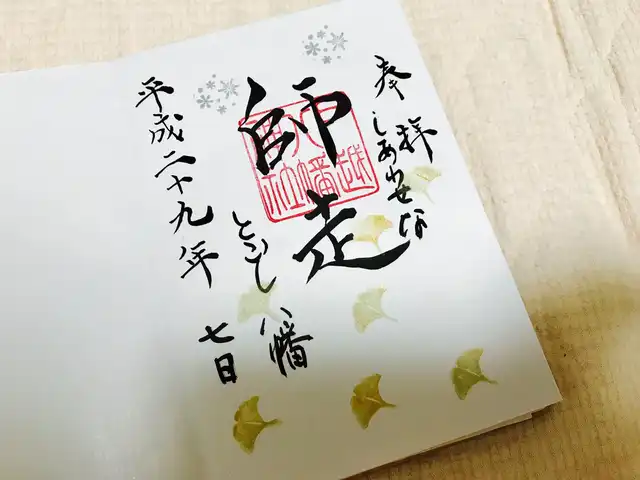 奉拝
しあわせな
師走
とごし八幡
平成二十九年
七日
戸越
八幡
神社